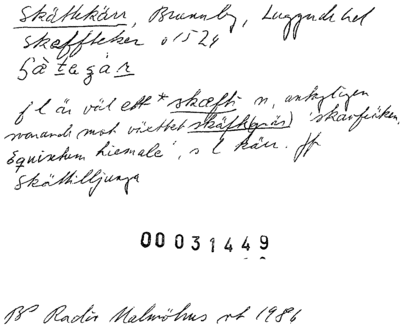 Skättekärr, Brunnby, Luggude hd
skeffteker o 1524
ʂätagár
f l är väl ett * skæfti n, antagligen
svarande mot växtbet skäfte(gräs) 'skavfräken,
Equisetum hiemale', s l kärr. Jf
Skättilljunga
00031449
BP Radis Malmöhus vt 1986